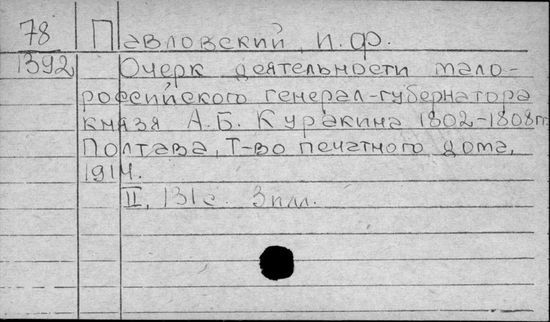 78 Павловский, И. Ф.
1392 Очерк деятельности мало-
российского генерал-губернатора
князя А. Б. Куракина 1802-1808гг.
Полтава, Т-во печатного дома,
1914.
II, 131 с. 3 илл.